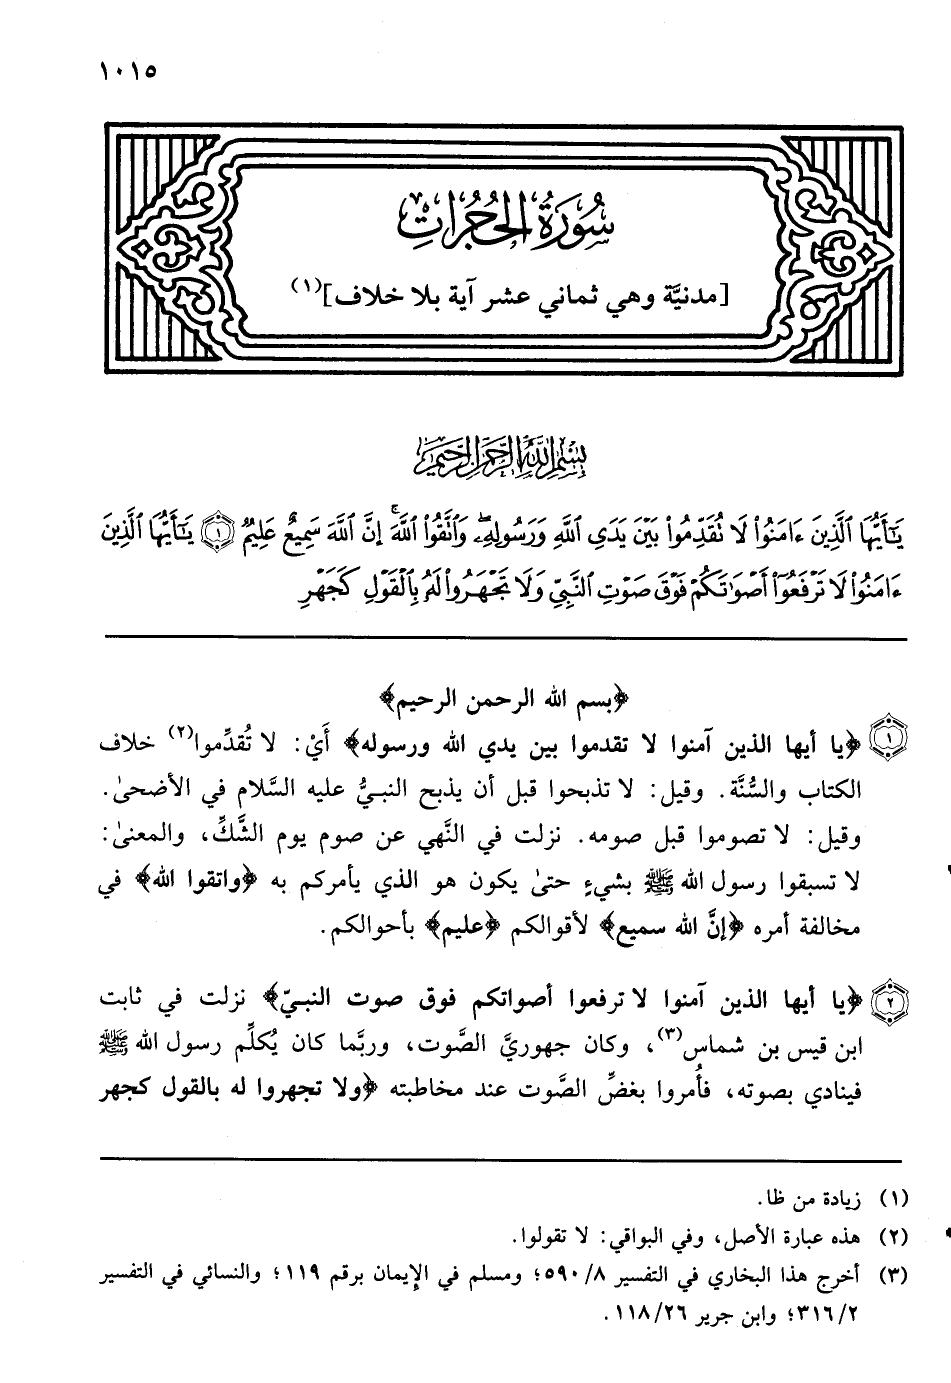 ١٠١٥
سُورَةُ الحُجُرَاتِ
[مدنيَّة وهي ثماني عشر آية بلا خلاف](١)
بِسْمِ اللَّهِ الرَّحْمَنِ الرَّحِيمِ
يَٰٓأَيُّهَا ٱلَّذِينَ ءَامَنُوا۟ لَا تُقَدِّمُوا۟ بَيْنَ يَدَىِ ٱللَّهِ وَرَسُولِهِۦ ۖ وَٱتَّقُوا۟ ٱللَّهَ ۚ إِنَّ ٱللَّهَ سَمِيعٌ عَلِيمٌ ١ يَٰٓأَيُّهَا ٱلَّذِينَ
ءَامَنُوا۟ لَا تَرْفَعُوٓا۟ أَصْوَٰتَكُمْ فَوْقَ صَوْتِ ٱلنَّبِىِّ وَلَا تَجْهَرُوا۟ لَهُۥ بِٱلْقَوْلِ كَجَهْرِ
﴿بسم الله الرحمن الرحيم﴾
١ ﴿يا أيها الذين آمنوا لا تقدموا بين يدي الله ورسوله﴾ أَيْ: لا تُقدِّموا(٢) خلاف
الكتاب والسُّنَّة. وقيل: لا تذبحوا قبل أن يذبح النبيُّ عليه السَّلام في الأضحىٰ.
وقيل: لا تصوموا قبل صومه. نزلت في النَّهي عن صوم يوم الشَّكِّ، والمعنىٰ:
لا تسبقوا رسول الله ﷺ بشيءٍ حتىٰ يكون هو الذي يأمركم به ﴿واتقوا الله﴾ في
مخالفة أمره ﴿إنَّ الله سميع﴾ لأقوالكم ﴿عليم﴾ بأحوالكم.
٢ ﴿يا أيها الذين آمنوا لا ترفعوا أصواتكم فوق صوت النبيّ﴾ نزلت في ثابت
ابن قيس بن شماس(٣)، وكان جهوريَّ الصَّوت، وربَّما كان يُكلِّم رسول الله ﷺ
فينادي بصوته، فأُمروا بغضِّ الصَّوت عند مخاطبته ﴿ولا تجهروا له بالقول كجهر
(١) زيادة من ظا.
(٢) هذه عبارة الأصل، وفي البواقي: لا تقولوا.
(٣) أخرج هذا البخاري في التفسير ٨/٥٩٠؛ ومسلم في الإيمان برقم ١١٩؛ والنسائي في التفسير
٢/٣١٦؛ وابن جرير ٢٦/١١٨.